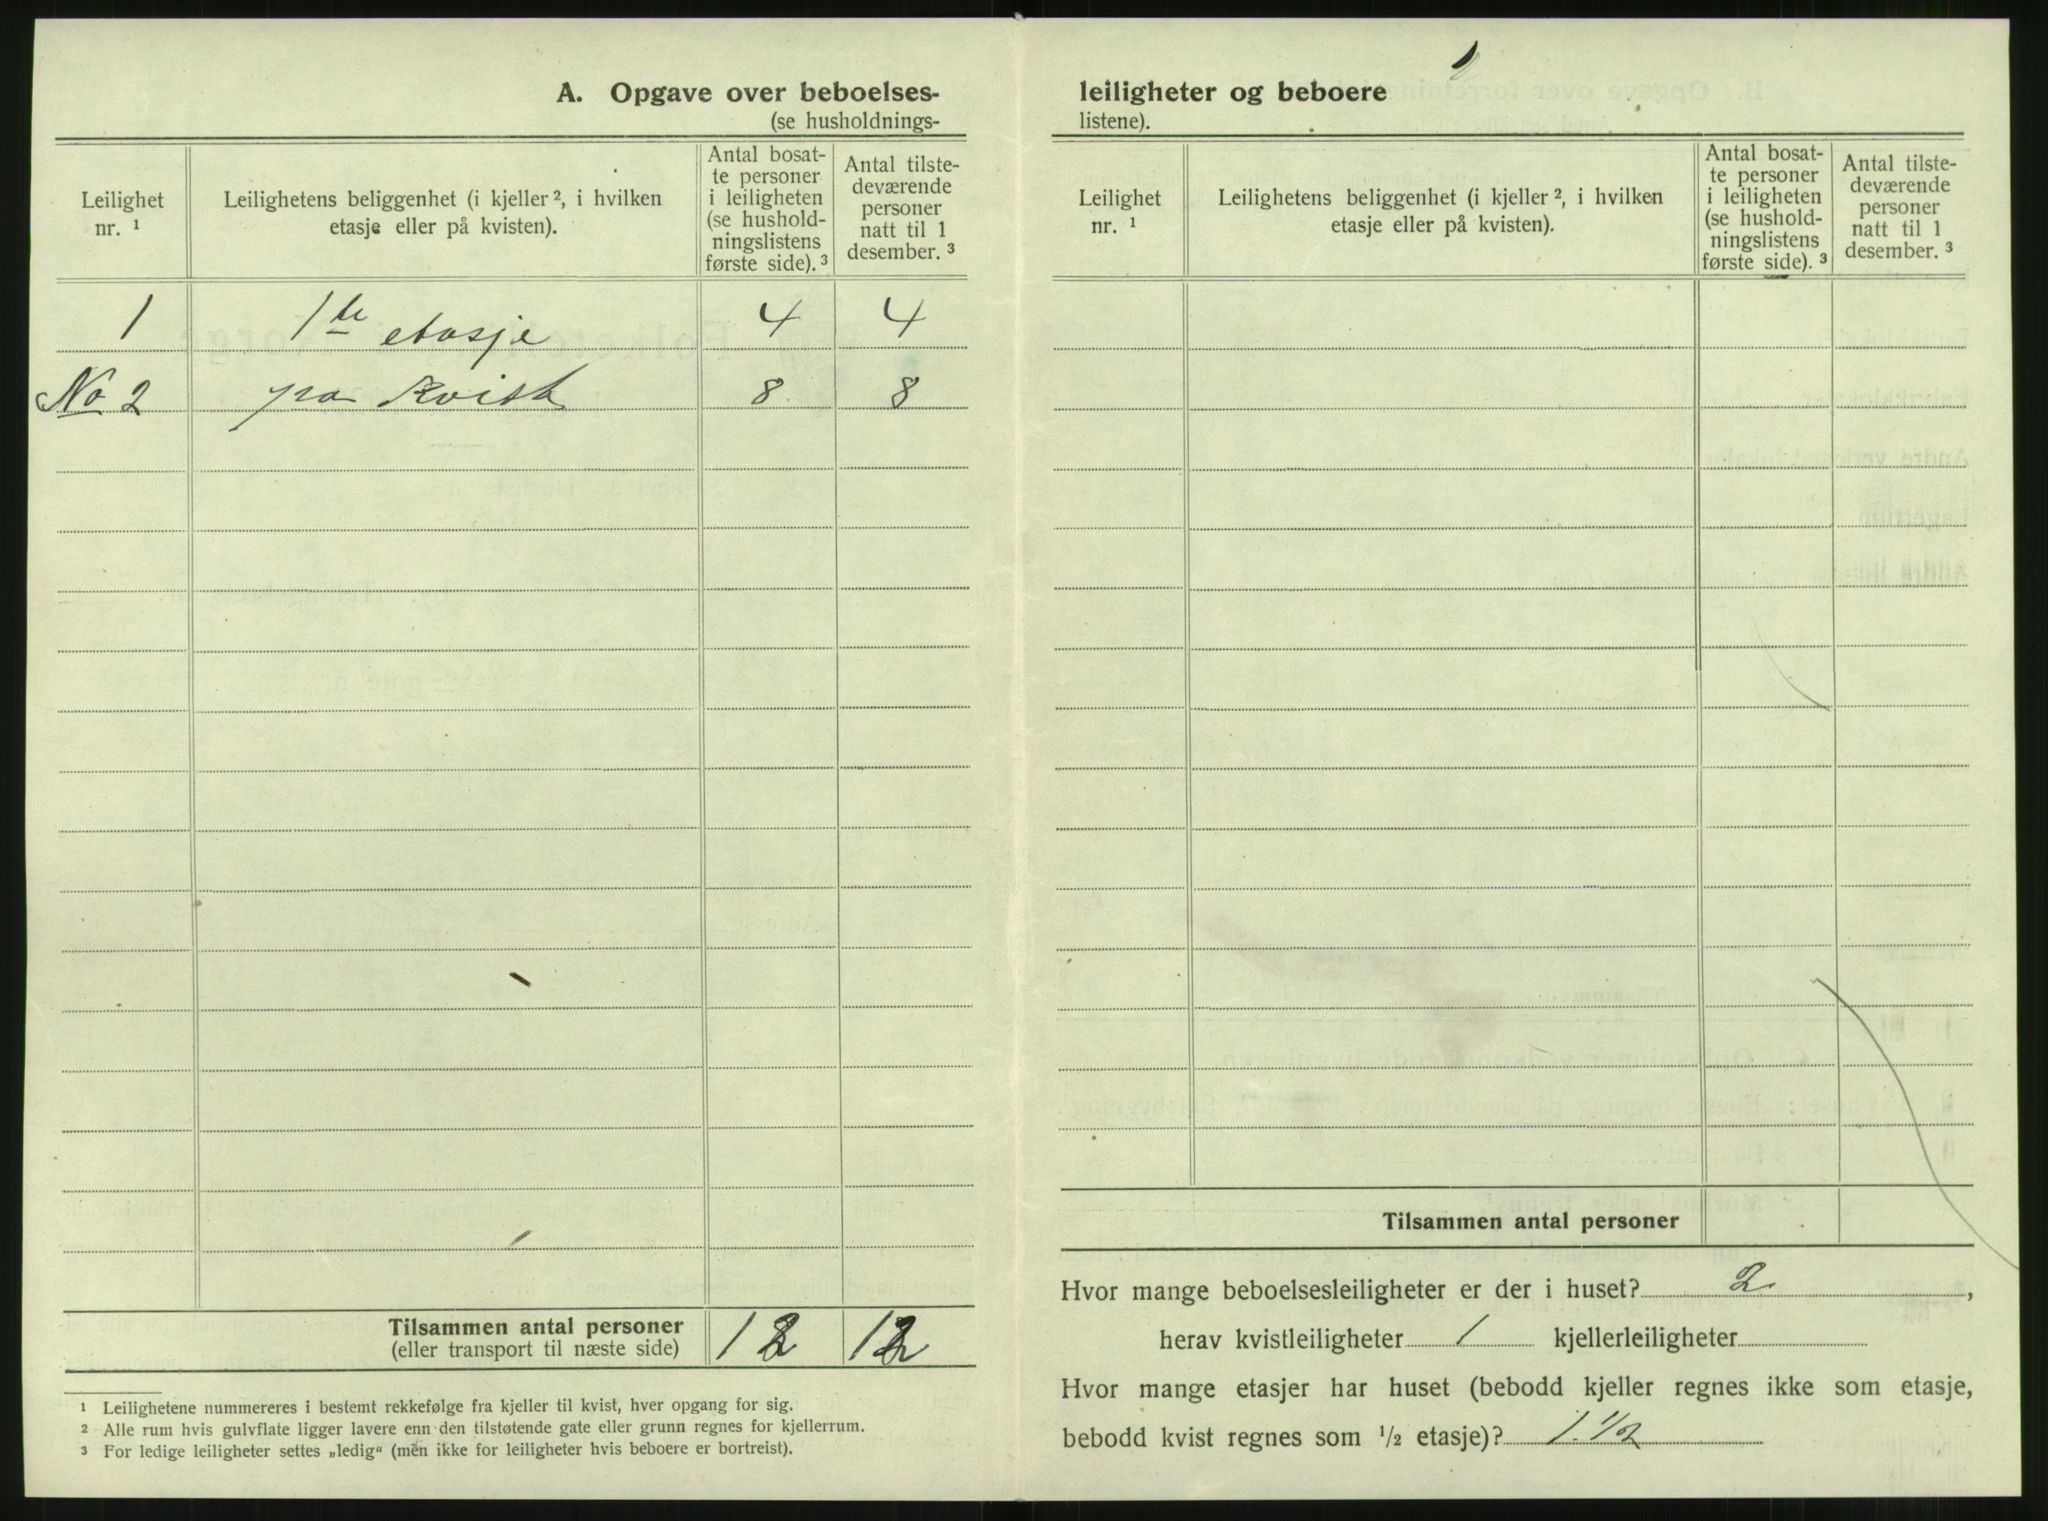 A. Opgave over beboelses-
(se husholdnings-
Leilighet
nr. ¹
Leilighetens beliggenhet (i kjeller ², i hvilken
etasje eller på kvisten).
Antal bosat-
te personer
i leiligheten
(se hushold-
ningslistens
første side). ³
Antal tilste-
deværende
personer
natt til 1
desember. ³
1 1te etasje 4 4
No 2 pa Kvist 8 8
Tilsammen antal personer 12 12
(eller transport til næste side)
¹ Leilighetene nummereres i bestemt rekkefølge fra kjeller til kvist, hver opgang for sig.
² Alle rum hvis gulvflate ligger lavere enn den tilstøtende gate eller grunn regnes for kjellerrum.
³ For ledige leiligheter settes „ledig“ (men ikke for leiligheter hvis beboere er bortreist).
leiligheter og beboere
listene).
Leilighet
nr. ¹
Leilighetens beliggenhet (i kjeller ², i hvilken
etasje eller på kvisten).
Antal bosat-
te personer
i leiligheten
(se hushold-
ningslistens
første side). ³
Antal tilste-
deværende
personer
natt til 1
desember. ³
Tilsammen antal personer
Hvor mange beboelsesleiligheter er der i huset? 2,
herav kvistleiligheter 1 kjellerleiligheter
Hvor mange etasjer har huset (bebodd kjeller regnes ikke som etasje,
bebodd kvist regnes som ½ etasje)? 1.½